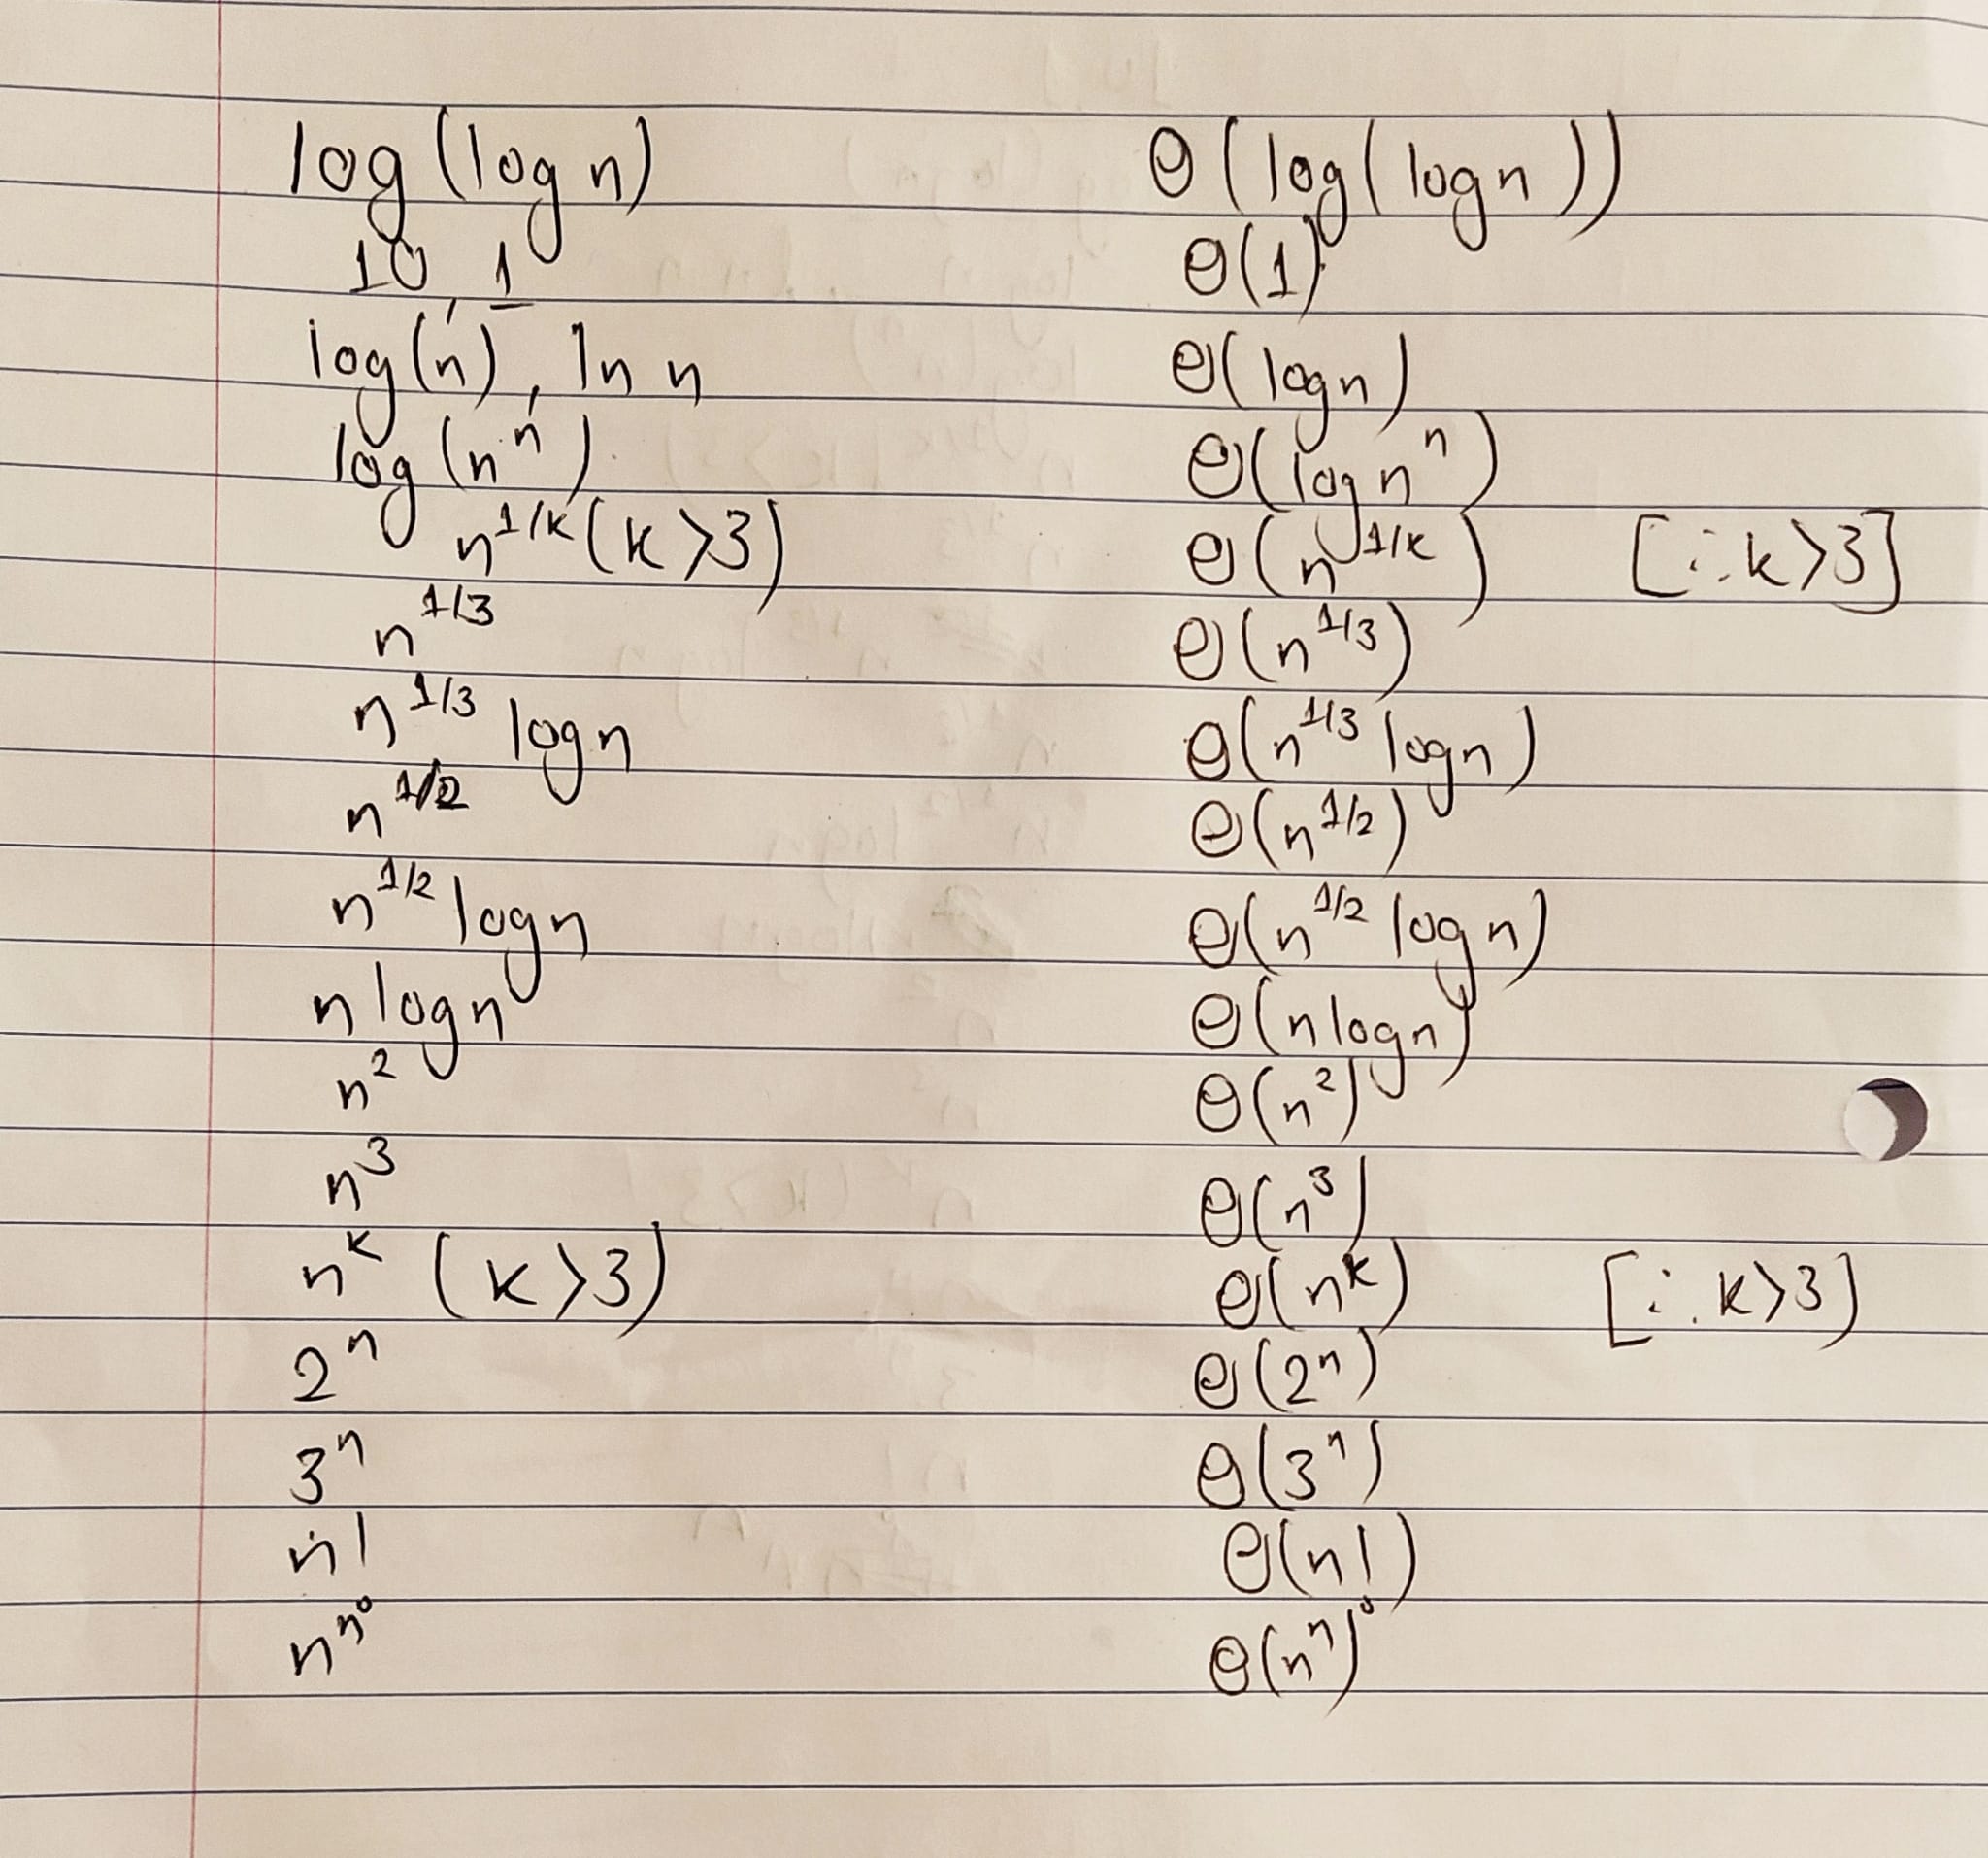 log (log n) θ (log (log n))
10, 1 θ(1)
log(n), ln n θ(log n)
log (nⁿ) θ(log nⁿ)
n^1/k (k>3) θ(n^1/k) [∵ k>3]
n^1/3 θ(n^1/3)
n^1/3 log n θ(n^1/3 log n)
n^1/2 θ(n^1/2)
n^1/2 log n θ(n^1/2 log n)
n log n θ(n log n)
n² θ(n²)
n³ θ(n³)
n^k (k>3) θ(n^k) [∵ k>3]
2ⁿ θ(2ⁿ)
3ⁿ θ(3ⁿ)
n! θ(n!)
nⁿ θ(nⁿ)